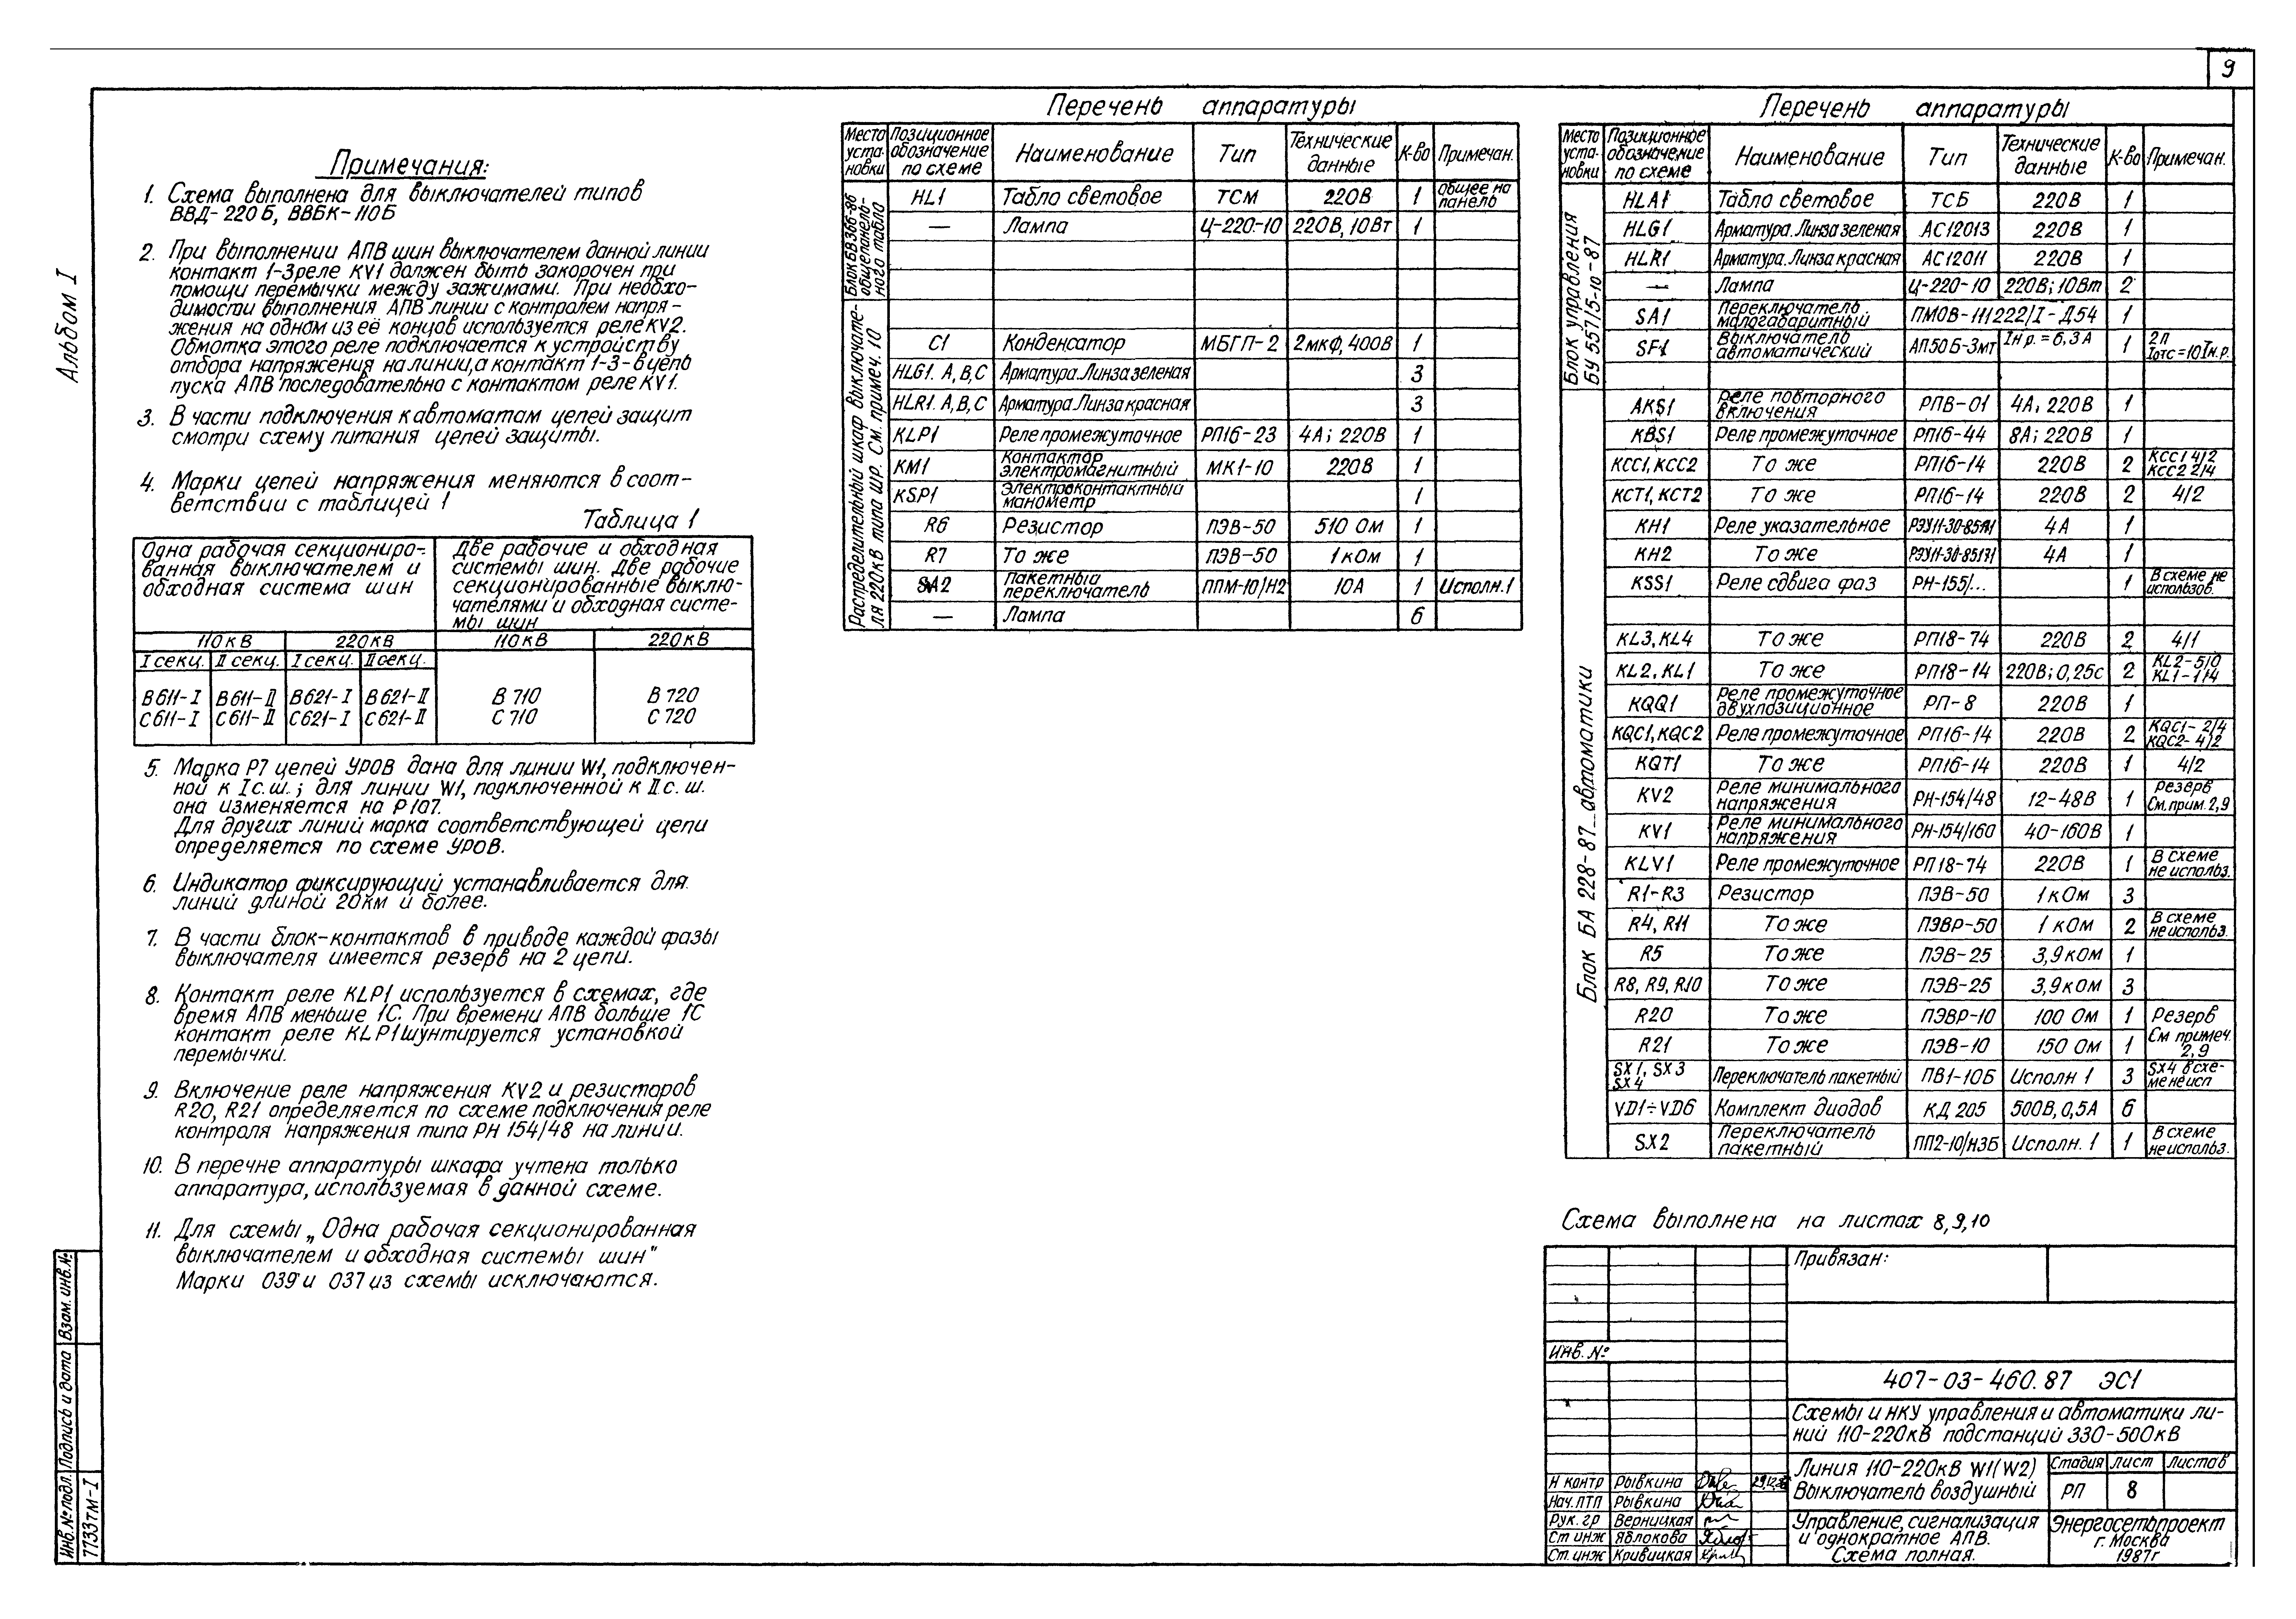 9
Альбом I
Примечания:
1. Схема выполнена для выключателей типов
ВВД-220Б, ВВБК-110Б
2. При выполнении АПВ шин выключателем данной линии
контакт 1-3 реле KV1 должен быть закорочен при
помощи перемычки между зажимами. При необхо-
димости выполнения АПВ линии с контролем напря-
жения на одном из её концов используется реле KV2.
Обмотка этого реле подключается к устройству
отбора напряжения на линии, а контакт 1-3-в цепь
пуска АПВ последовательно с контактом реле KV1.
3. В части подключения к автоматам цепей защит
смотри схему питания цепей защиты.
4. Марки цепей напряжения меняются в соот-
ветствии с таблицей 1
Таблица 1
Одна рабочая секциониро-
ванная выключателем и
обходная система шин
Две рабочие и обходная
системы шин. Две рабочие
секционированные выклю-
чателями и обходная систе-
мы шин
110кВ 220кВ 110кВ 220кВ
I секц. II секц. I секц. II секц.
В611-I В611-II В621-I В621-II В710 В720
С611-I С611-II С621-I С621-II С710 С720
5. Марка Р7 цепей УРОВ дана для линии W1, подключен-
ной к I с.ш.; для линии W1, подключенной к II с.ш.
она изменяется на Р107.
Для других линий марка соответствующей цепи
определяется по схеме УРОВ.
6. Индикатор фиксирующий устанавливается для
линий длиной 20км и более.
7. В части блок-контактов в приводе каждой фазы
выключателя имеется резерв на 2 цепи.
8. Контакт реле KLP1 используется в схемах, где
время АПВ меньше 1С. При времени АПВ больше 1С
контакт реле KLP1 шунтируется установкой
перемычки.
9. Включение реле напряжения KV2 и резисторов
R20, R21 определяется по схеме подключения реле
контроля напряжения типа РН 154/48 на линии.
10. В перечне аппаратуры шкафа учтена только
аппаратура, используемая в данной схеме.
11. Для схемы „Одна рабочая секционированная
выключателем и обходная системы шин"
Марки 039 и 037 из схемы исключаются.
Перечень аппаратуры
Место уста-новки Позиционное обозначение по схеме Наименование Тип Технические данные К-во Примечан.
Блок БВ366-86 общепанель-ного табло
HL1 Табло световое ТСМ 220В 1 общее на панель
— Лампа Ц-220-10 220В, 10Вт 1
Распределительный шкаф выключате-ля 220кВ типа шр. См. примеч. 10
C1 Конденсатор МБГП-2 2мкф, 400В 1
HLG1. А,В,С Арматура. Линза зеленая 3
HLR1. А,В,С Арматура. Линза красная 3
KLP1 Реле промежуточное РП16-23 4А; 220В 1
KM1 Контактор электромагнитный МК1-10 220В 1
KSP1 Электроконтактный манометр 1
R6 Резистор ПЭВ-50 510 Ом 1
R7 То же ПЭВ-50 1кОм 1
SA2 Пакетный переключатель ППМ-10/Н2 10А 1 Исполн. 1
— Лампа 6
Перечень аппаратуры
Место уста-новки Позиционное обозначение по схеме Наименование Тип Технические данные К-во Примечан.
Блок управления БУ 557/5-10-87
HLA1 Табло световое ТСБ 220В 1
HLG1 Арматура. Линза зеленая АС12013 220В 1
HLR1 Арматура. Линза красная АС12011 220В 1
— Лампа Ц-220-10 220В; 10Вт 2
SA1 Переключатель малогабаритный ПМОВ-111222/I-Д54 1
SF1 Выключатель автоматический АП50Б-3МТ Iн.р.=6,3А 1 2п Iотс=10Iн.р.
Блок БА 228-87 автоматики
AKS1 Реле повторного включения РПВ-01 4А; 220В 1
KBS1 Реле промежуточное РП16-44 8А; 220В 1
KCC1, KCC2 То же РП16-14 220В 2 KCC1 4/2 KCC2 2/4
KCT1, KCT2 То же РП16-14 220В 2 4/2
KH1 Реле указательное 4А 1
KH2 То же РЭУ11-30-85131 4А 1
KSS1 Реле сдвига фаз РН-155/... 1 В схеме не использов.
KL3, KL4 То же РП18-74 220В 2 4/1
KL2, KL1 То же РП18-14 220В; 0,25с 2 KL2-5/0 KL1-1/4
KQQ1 Реле промежуточное двухпозиционное РП-8 220В 1
KQC1, KQC2 Реле промежуточное РП16-14 220В 2 KQC1-2/4 KQC2-4/2
KQT1 То же РП16-14 220В 1 4/2
KV2 Реле минимального напряжения РН-154/48 12-48В 1 Резерв См. прим. 2,9
KV1 Реле минимального напряжения РН-154/160 40-160В 1
KLV1 Реле промежуточное РП18-74 220В 1 В схеме не использ.
R1-R3 Резистор ПЭВ-50 1кОм 3
R4, R11 То же ПЭВР-50 1кОм 2 В схеме не использ.
R5 То же ПЭВ-25 3,9кОм 1
R8, R9, R10 То же ПЭВ-25 3,9кОм 3
R20 То же ПЭВР-10 100 Ом 1 Резерв
R21 То же ПЭВ-10 150 Ом 1 См примеч. 2,9
SX1, SX3 SX4 Переключатель пакетный ПВ1-10Б Исполн 1 3 SX4 в схе-ме не исп
VD1÷VD6 Комплект диодов КД 205 500В, 0,5А 6
SX2 Переключатель пакетный ПП2-10/Н3Б Исполн. 1 1 В схеме не использ.
Схема выполнена на листах 8, 9, 10
Привязан:
Инв. №
407-03-460.87 ЭС1
Схемы и НКУ управления и автоматики ли-
ний 110-220кВ подстанций 330-500кВ
Линия 110-220кВ W1(W2)
Выключатель воздушный
Стадия Лист Листов
РП 8
Управление, сигнализация
и однократное АПВ.
Схема полная.
Энергосетьпроект
г. Москва
1987г
Н контр Рывкина
Нач. ПТП Рывкина
Рук. гр Верницкая
Ст инж Яблокова
Ст. инж Кривицкая
Взам. инв. №
Подпись и дата
Инв. № подл.
7733тм-I